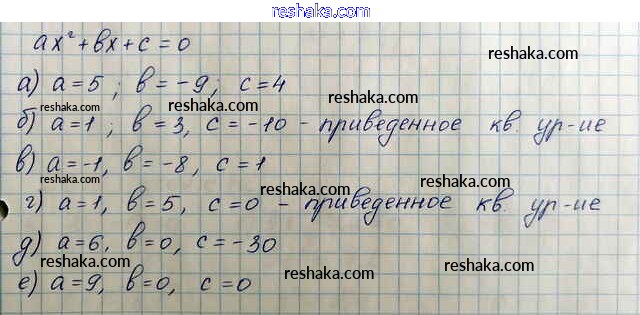 reshaka.com
ax² + bx + c = 0
reshaka.com
а) a = 5 ; b = -9; c = 4
reshaka.com reshaka.com
reshaka.com reshaka.com
б) a = 1 ; b = 3, c = -10 - приведенное кв. ур-ие
reshaka.com
в) a = -1, b = -8, c = 1
reshaka.com reshaka.com reshaka.com
г) a = 1, b = 5, c = 0 - приведенное кв. ур-ие
reshaka.com
д) a = 6, b = 0, c = -30
reshaka.com reshaka.com
е) a = 9, b = 0, c = 0
reshaka.com